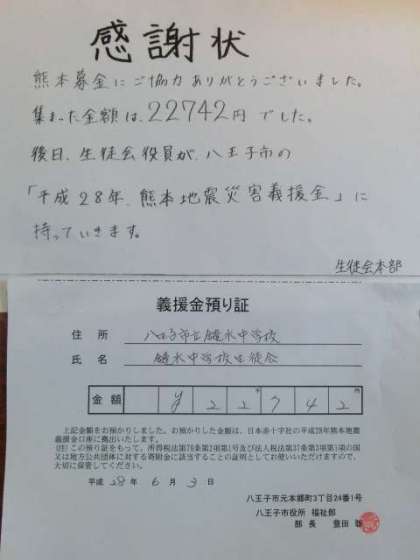 感謝状
熊本募金にご協力ありがとうございました。
集まった金額は、22742円でした。
後日、生徒会役員が、八王子市の
「平成28年、熊本地震災害義援金」に
持っていきます。
生徒会本部
義援金預り証
住所 八王子市立鑓水中学校
氏名 鑓水中学校生徒会
金額 ¥ 2 2 7 4 2
上記金額をお預かりしました。お預かりした金額は、日本赤十字社の平成28年熊本地震
義援金口座に拠出いたします。
(注)この預り証をもって、所得税法第78条第2項第1号及び法人税法第37条第3項第1項の国
又は地方公共団体に対する寄附金に該当することの証明としてお使いいただけますので、
大切に保管してください。
平成 28年 6月 3日
八王子市元本郷町3丁目24番1号
八王子市役所 福祉部
部長 豊田 聡